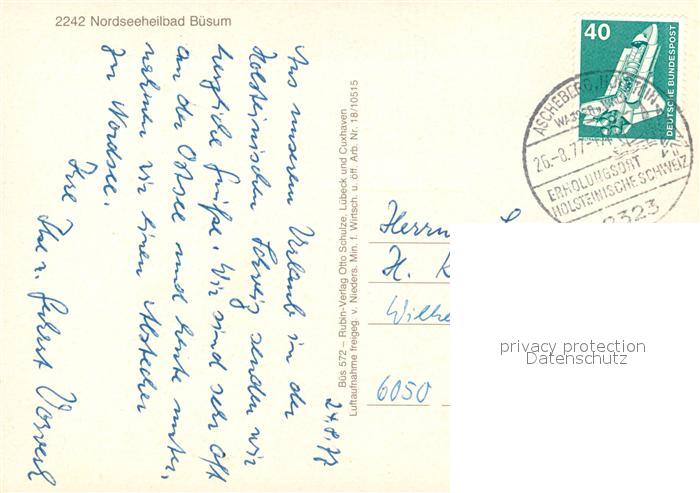 2242 Nordseeheilbad Büsum
Aus unserem Urlaub in der
Holsteinischen Schweiz senden wir
herzliche Grüße. Wir sind sehr oft
an der Ostsee und heute unter-
nehmen wir einen Abstecher
zur Nordsee.
Ihre
24.8.77
Büs 572 – Rubin-Verlag Otto Schulze, Lübeck und Cuxhaven
Luftaufnahme freigeg. v. Nieders. Min. f. Wirtsch. u. öff. Arb. Nr. 18/10515
40
DEUTSCHE BUNDESPOST
ASCHEBERG, HOLSTEIN
26.-8.77-17
ERHOLUNGSORT
HOLSTEINISCHE SCHWEIZ
2323
Herrn
H. K
Wilhe
6050
privacy protection
Datenschutz